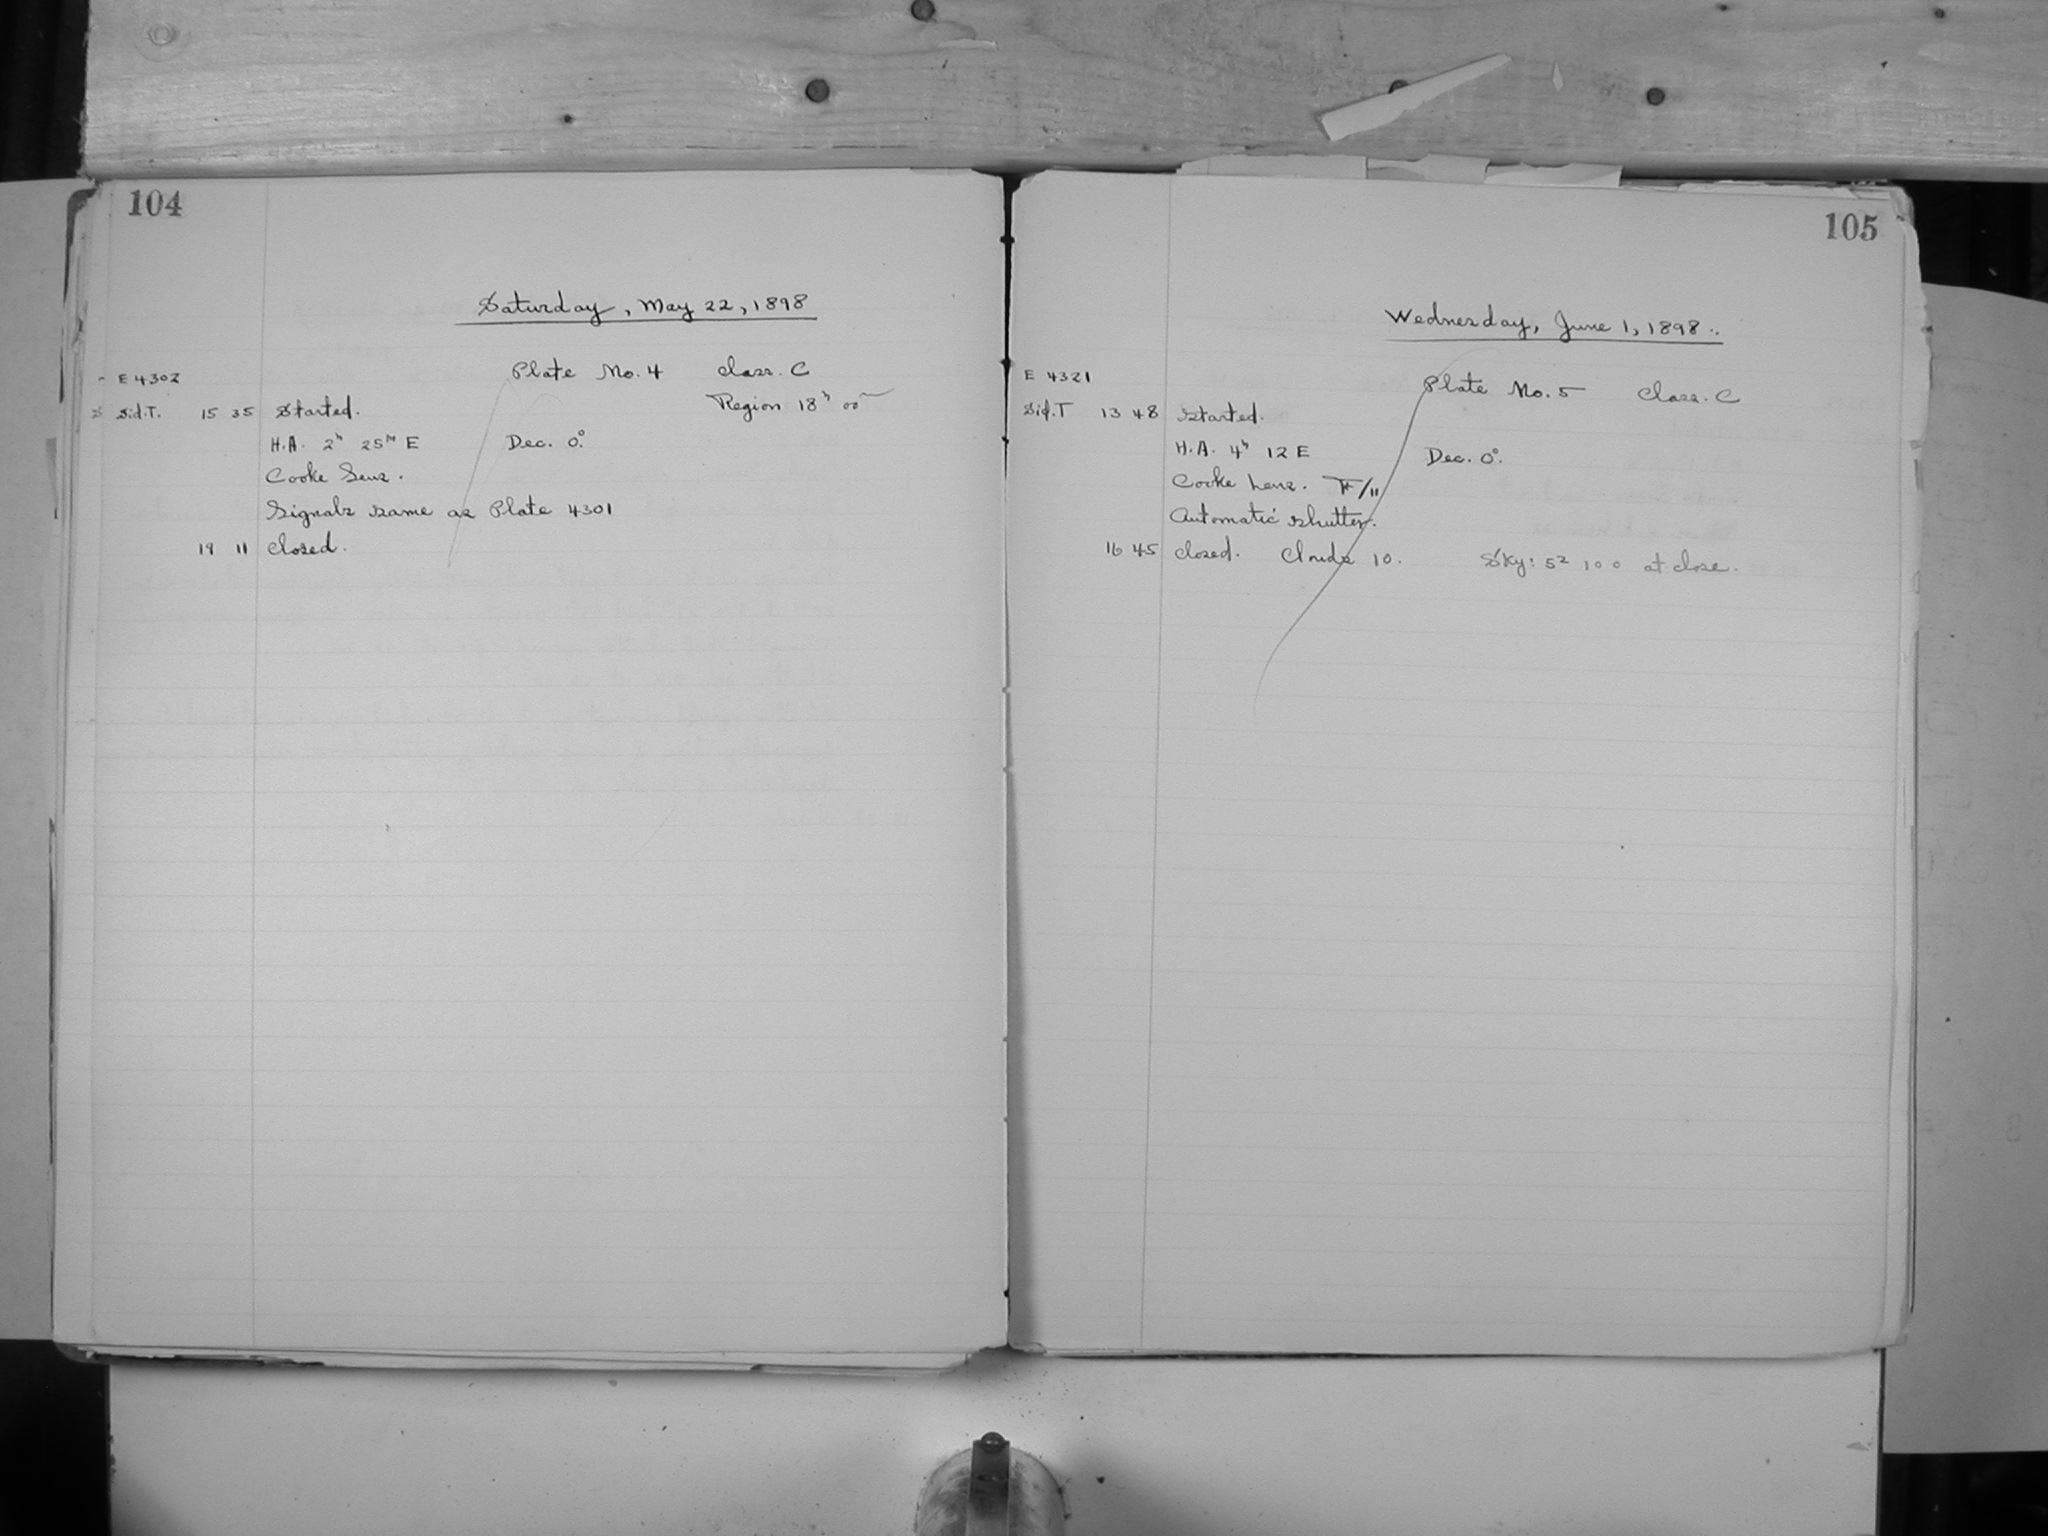 104
Saturday, May 22, 1898
E 4302 Plate No. 4 Class. C
Sid.T. 15 35 Started. Region 18h 00m
H.A. 2h 25m E Dec. 0°.
Cooke Lens.
Signals same as Plate 4301
19 11 Closed.
105
Wednesday, June 1, 1898.
E 4321 Plate No. 5 Class. C
Sid.T 13 48 Started.
H.A. 4h 12 E Dec. 0°.
Cooke Lens. F/11
Automatic Shutter.
16 45 Closed. Clouds 10. Sky: 52 100 at close.